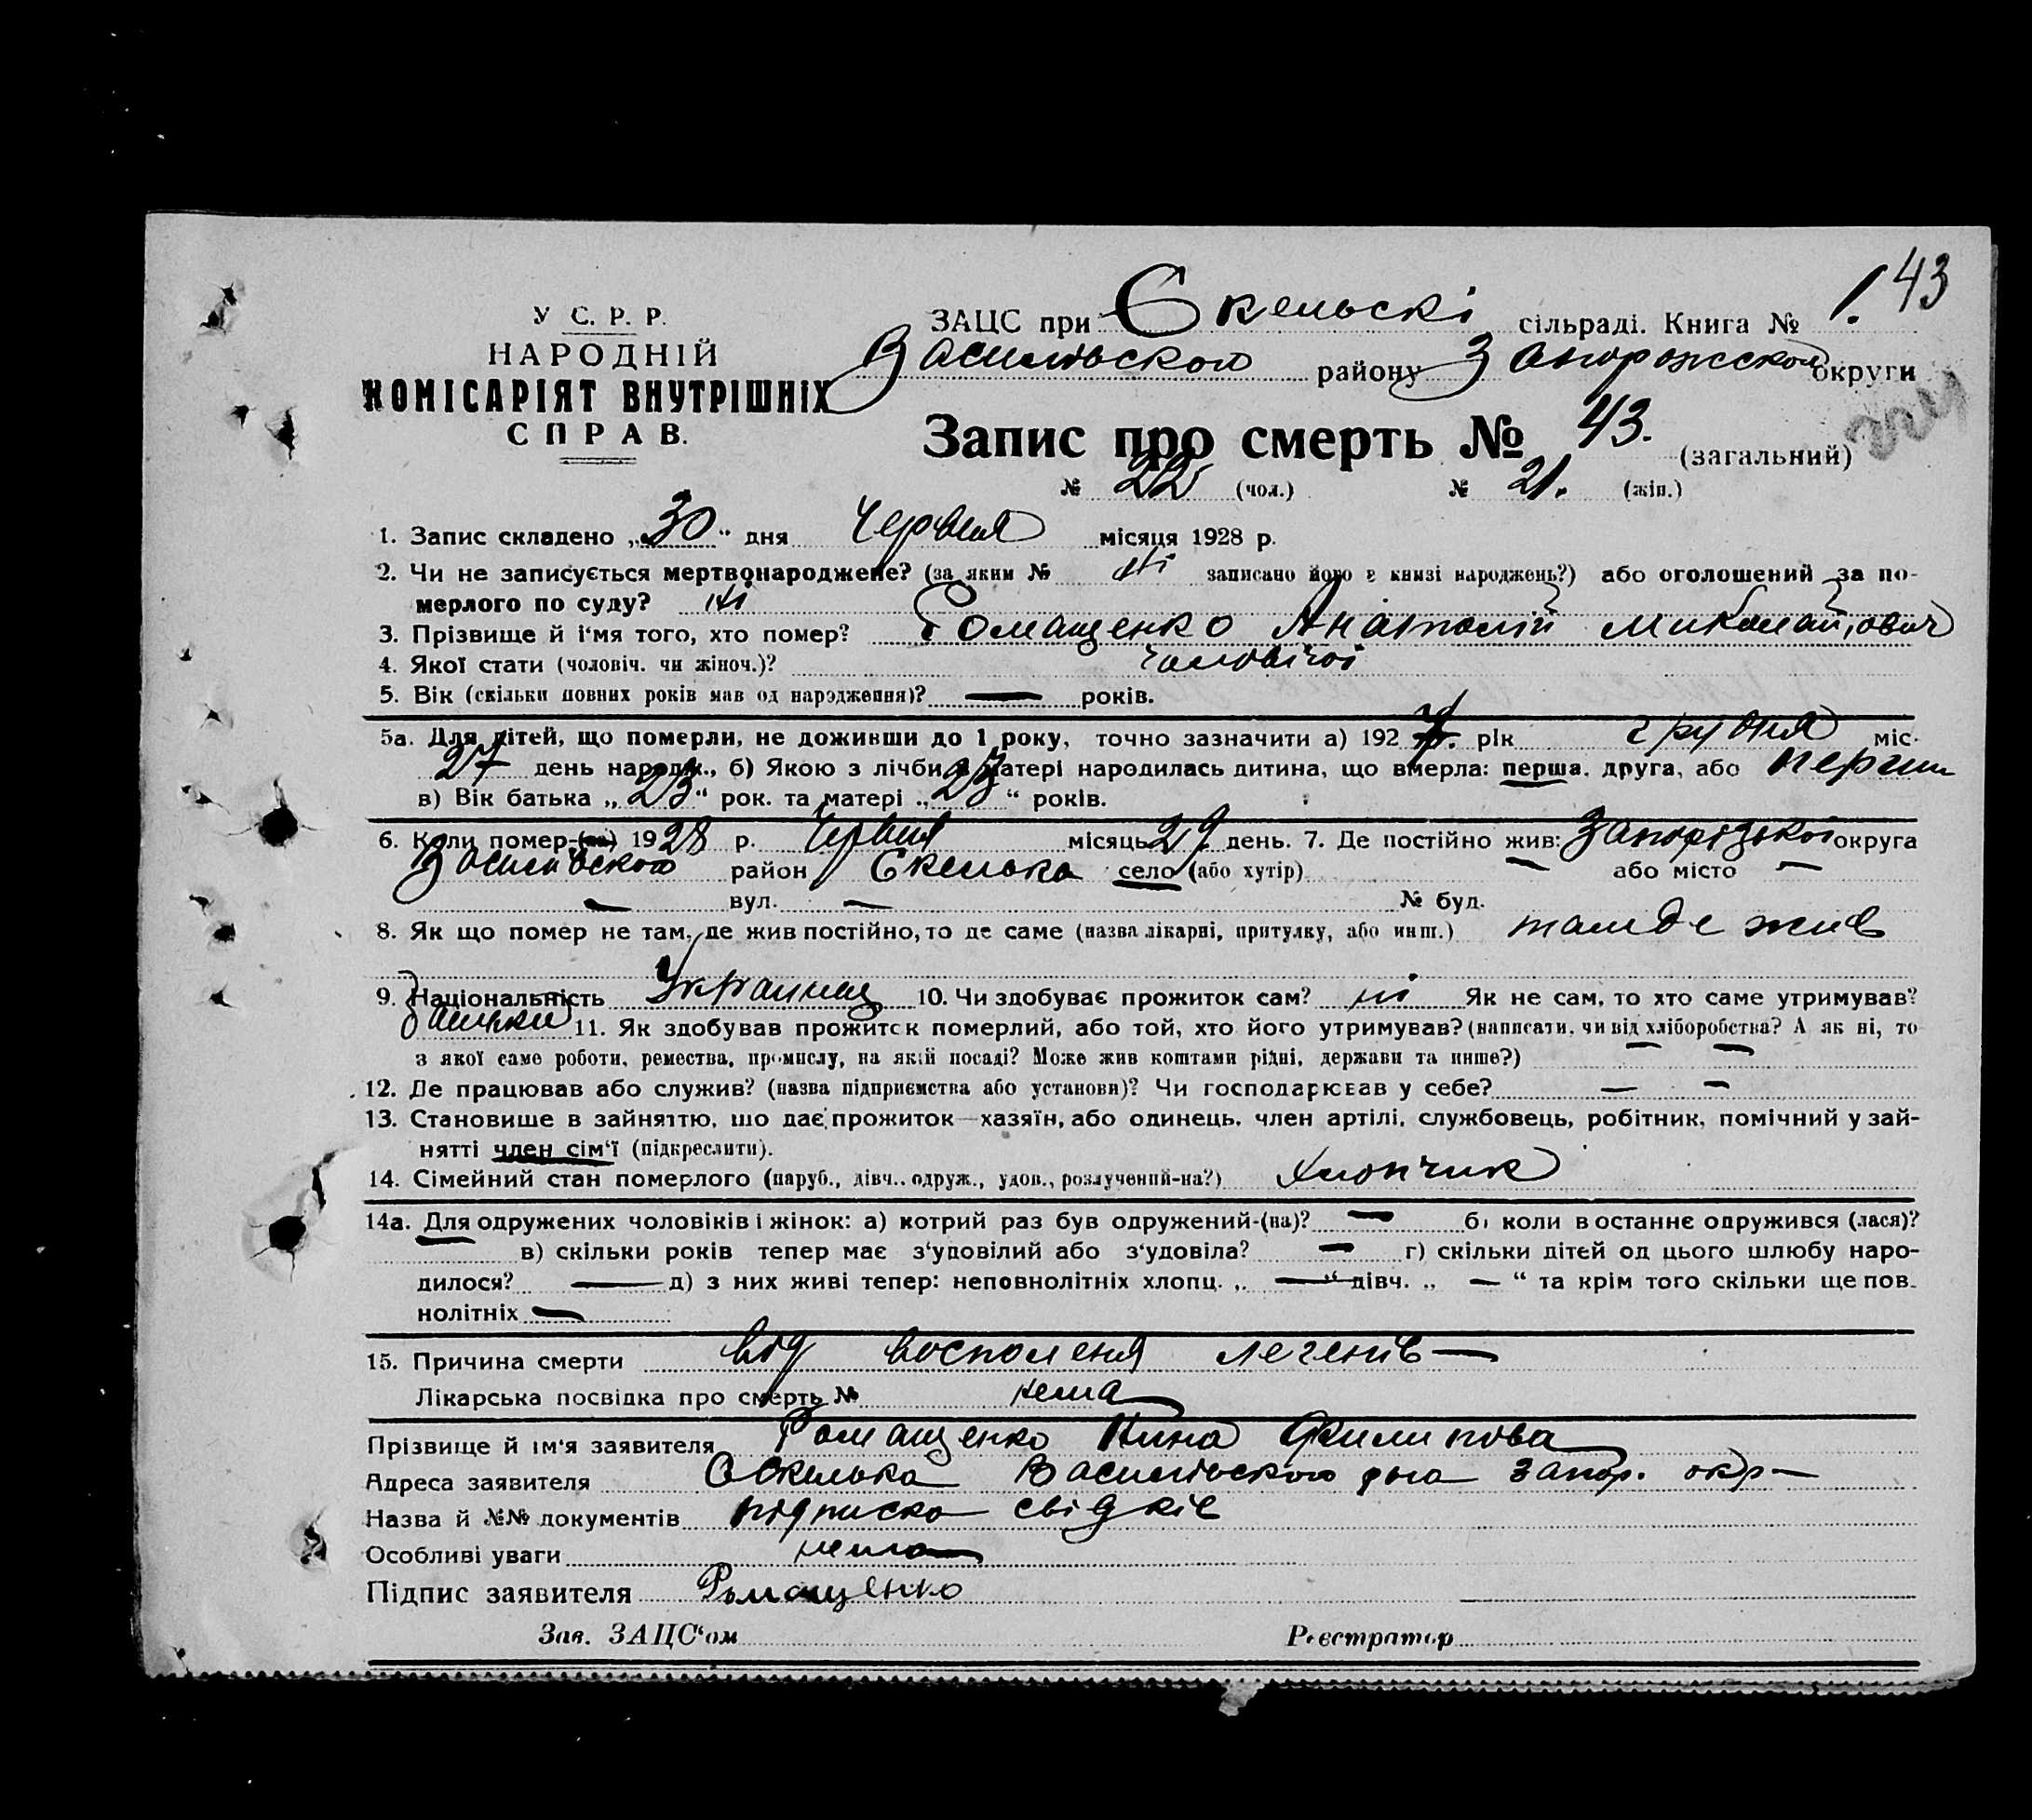 43
У С. Р. Р.
НАРОДНІЙ
КОМІСАРІЯТ ВНУТРІШНІХ
СПРАВ.
ЗАЦС при Скельскі сільраді. Книга № 1.
Василівського району Запорожської округи
Запис про смерть № 43. (загальний)
№ 22 (чол.) № 21. (жін.)
1. Запис складено „30“ дня Червня місяця 1928 р.
2. Чи не записується мертвонароджене? (за яким № ні записано його в книзі народжень?) або оголошений за по-
мерлого по суду? ні
3. Прізвище й і'мя того, хто помер? Ромащенко Анатолій Миколайович
4. Якої стати (чоловіч. чи жіноч.)? чоловічої
5. Вік (скільки повних років мав од народження)? — років.
5а. Для дітей, що померли, не доживши до 1 року, точно зазначити а) 1927 рік грудня міс.
27 день народж., б) Якою з лічби в матері народилась дитина, що вмерла: перша, друга, або перша
в) Вік батька „23“ рок. та матері „23“ років.
6. Коли помер-(ла) 1928 р. Червня місяць 29 день. 7. Де постійно жив: Запорізької округа
Василівского район Скелька село (або хутір) — або місто —
— вул. — № буд.
8. Як що помер не там, де жив постійно, то де саме (назва лікарні, притулку, або инш.) там де жив
9. Національність Українец 10. Чи здобуває прожиток сам? ні Як не сам, то хто саме утримував?
батьки 11. Як здобував прожиток померлий, або той, хто його утримував? (написати, чи від хліборобства? А як ні, то
з якої саме роботи, ремества, промислу, на якій посаді? Може жив коштами рідні, держави та инше?) — —
12. Де працював або служив? (назва підприємства або установи)? Чи господарював у себе? — —
13. Становище в зайняттю, що дає прожиток—хазяїн, або одинець, член артілі, службовець, робітник, помічний у зай-
нятті член сім'ї (підкреслити).
14. Сімейний стан померлого (паруб., дівч., одруж., удов., розлучений-на?) хлопчик
14а. Для одружених чоловіків і жінок: а) котрий раз був одружений-(на)? — б) коли в останнє одружився (лася)?
в) скільки років тепер має з'удовілий або з'удовіла? — г) скільки дітей од цього шлюбу наро-
дилося? — д) з них живі тепер: неповнолітніх хлопц. „—“ дівч. „—“ та крім того скільки ще пов-
нолітніх —
15. Причина смерти від воспаленя легенів —
Лікарська посвідка про смерть № нема
Прізвище й ім'я заявителя Ромащенко Нина Филипова
Адреса заявителя С Скелька Василівского р-на Запор. окр —
Назва й №№ документів підписка свідків
Особливі уваги нема
Підпис заявителя Ромащенко
Зав. ЗАЦС'ом Реєстратор